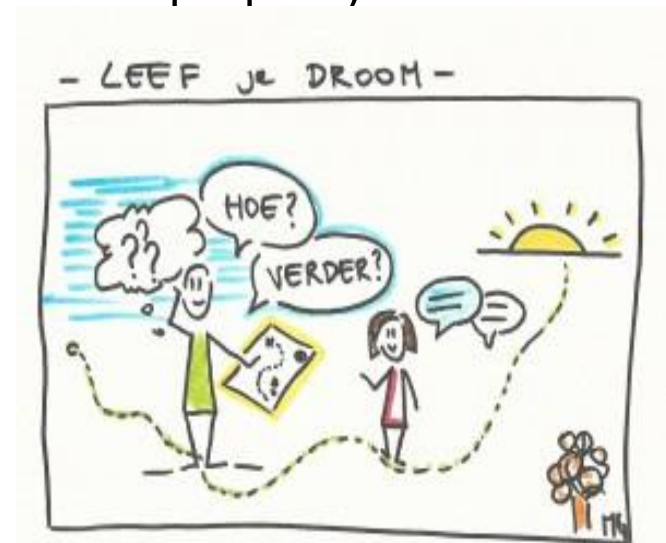 - LEEF je DROOM -
HOE?
??
VERDER?